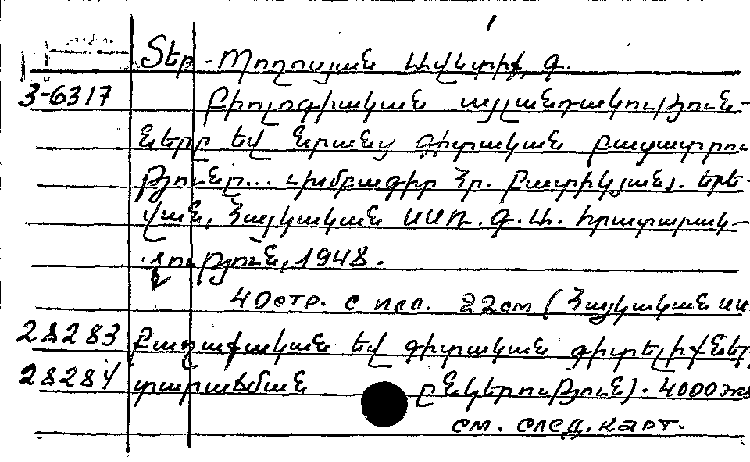 Տեր-Պողոսյան Ավետիք Գ.
3-6317 Բիոլոգիական այլանդակություն-
ները եվ նրանց գիտական բացատրու
թյունը... Խմբագիր Հր. Բատիկյան. Երե-
վան, Հայկական ՍՍՌ. Գ. Ա. հրատարակ-
չություն, 1948.
40 стр. с илл. 22 см (Հայկական ՍՍ
28283 Քաղաքական եվ գիտական գիտելիքներ
28284 տարածման ընկերություն). 4000 экз
см. след. карт.